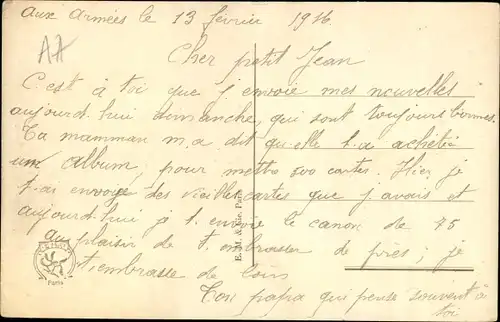 aux armées le 13 février 1916.
A7
Cher petit Jean
C'est à toi que j envoie mes nouvelles
aujourd.hui dimanche, qui sont toujours bonnes.
Ta mamman m.a dit qu.elle t.a achetée
un album, pour mettre 500 cartes. Hier je
t.ai envoyé des vieilles cartes que j.avais et
aujourd.hui je t.envoie le canon de 75
au plaisir de t.embrasser de près; je
t'embrasse de loin
Ton papa qui pense souvent à
toi
E. M. & Cie. Paris
Paris